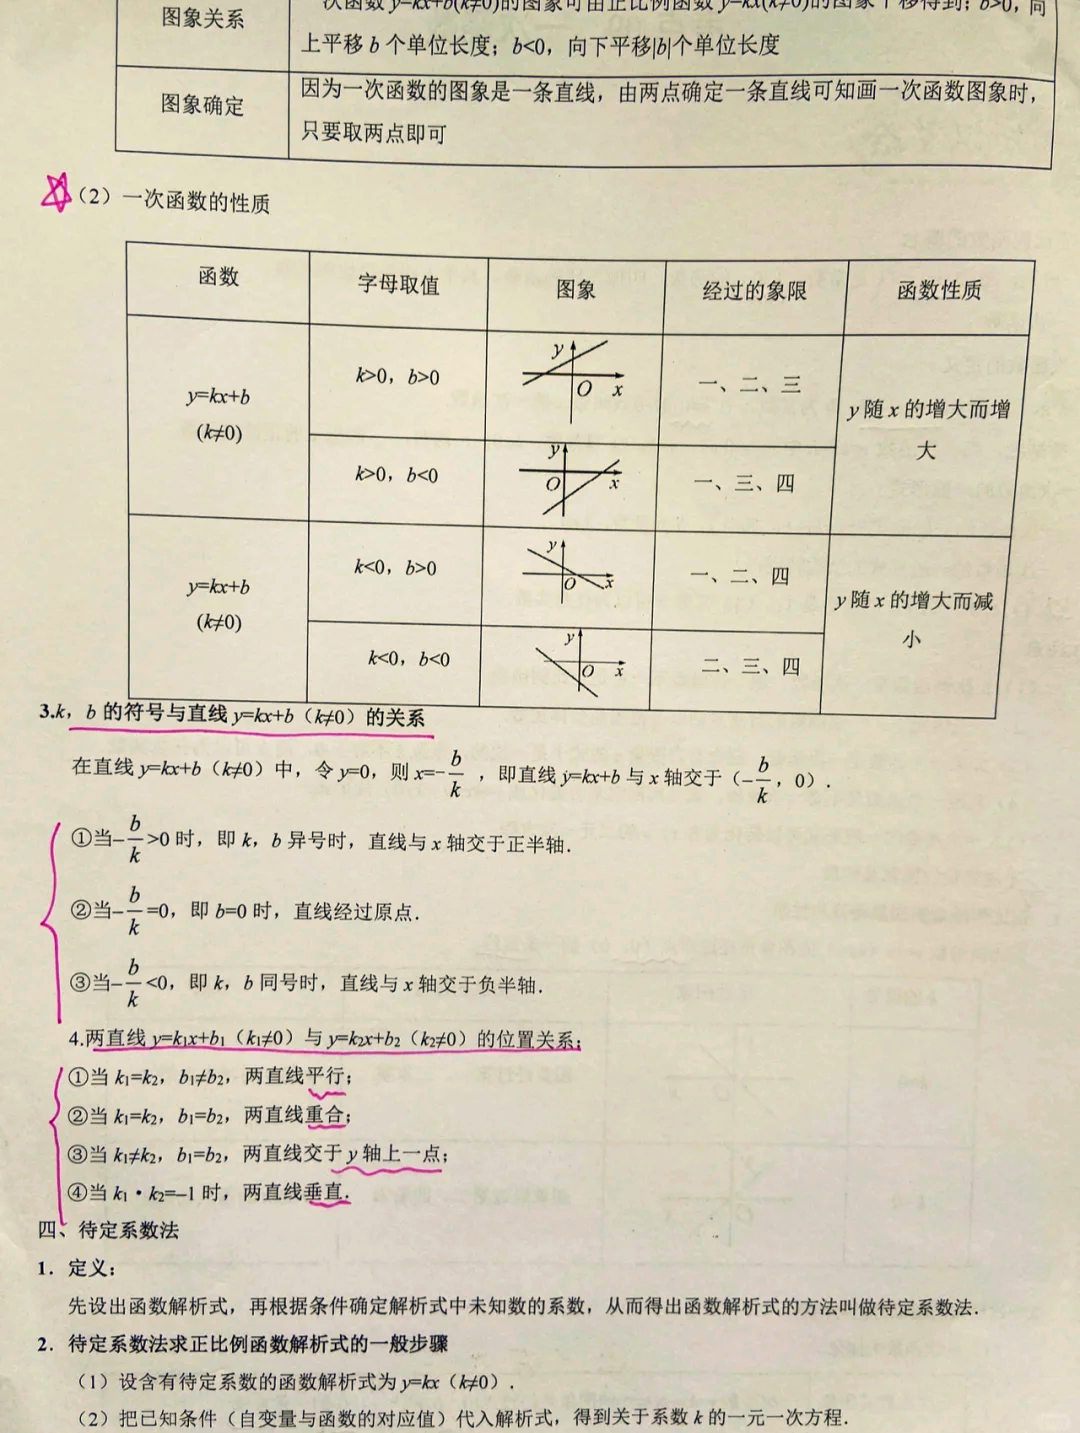 图象关系
一次函数 y=kx+b(k≠0)的图象可由正比例函数 y=kx(k≠0)的图象平移得到；b>0，向
上平移 b 个单位长度；b<0，向下平移|b|个单位长度
图象确定
因为一次函数的图象是一条直线，由两点确定一条直线可知画一次函数图象时，
只要取两点即可
（2）一次函数的性质
函数 字母取值 图象 经过的象限 函数性质
y=kx+b
(k≠0)
k>0，b>0
y
O x
一、二、三
y 随 x 的增大而增
大
k>0，b<0
y
O x
一、三、四
y=kx+b
(k≠0)
k<0，b>0
y
O x
一、二、四
y 随 x 的增大而减
小
k<0，b<0
y
O x
二、三、四
3.k，b 的符号与直线 y=kx+b（k≠0）的关系
在直线 y=kx+b（k≠0）中，令 y=0，则 x=-b/k，即直线 y=kx+b 与 x 轴交于（-b/k，0）.
①当-b/k>0 时，即 k，b 异号时，直线与 x 轴交于正半轴.
②当-b/k=0，即 b=0 时，直线经过原点.
③当-b/k<0，即 k，b 同号时，直线与 x 轴交于负半轴.
4.两直线 y=k₁x+b₁（k₁≠0）与 y=k₂x+b₂（k₂≠0）的位置关系：
①当 k₁=k₂，b₁≠b₂，两直线平行；
②当 k₁=k₂，b₁=b₂，两直线重合；
③当 k₁≠k₂，b₁=b₂，两直线交于 y 轴上一点；
④当 k₁·k₂=–1 时，两直线垂直.
四、待定系数法
1．定义：
先设出函数解析式，再根据条件确定解析式中未知数的系数，从而得出函数解析式的方法叫做待定系数法.
2．待定系数法求正比例函数解析式的一般步骤
（1）设含有待定系数的函数解析式为 y=kx（k≠0）.
（2）把已知条件（自变量与函数的对应值）代入解析式，得到关于系数 k 的一元一次方程.